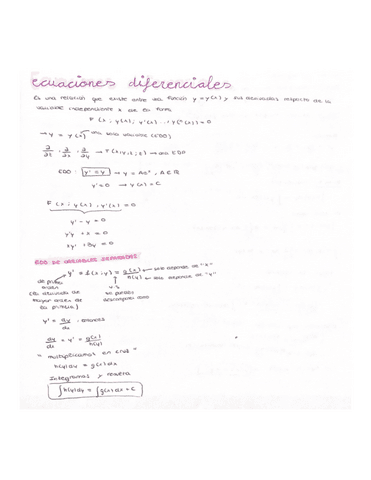 ecuaciones diferenciales
Es una relación que existe entre una función y = y(x) y sus derivadas respecto de la
variable independiente x de la forma
F(x ; y(x) ; y'(x) ... y^n(x)) = 0
→ y = y(x) una sola variable (EDO)
∂/∂t , ∂/∂x , ∂/∂y → T(x,y,z,t) → una EDO
EDO : y' = y → y = Ae^x , A ∈ R
y' = 0 → y(x) = C
F(x ; y(x) , y'(x)) = 0
y' - y = 0
y'y + x = 0
xy' + By = 0
EDO DE VARIABLES SEPARADAS
y' = f(x;y) = g(x)/h(y) ← solo depende de "x"
← solo depende de "y"
de primer
orden
(la derivada de
mayor orden es
la primera)
se puede
descomponer como
y' = dy/dx , entonces
dy/dx = y' = g(x)/h(y)
" multiplicamos en cruz "
h(y) dy = g(x) dx
Integramos y resulta
∫h(y)dy = ∫g(x)dx + C